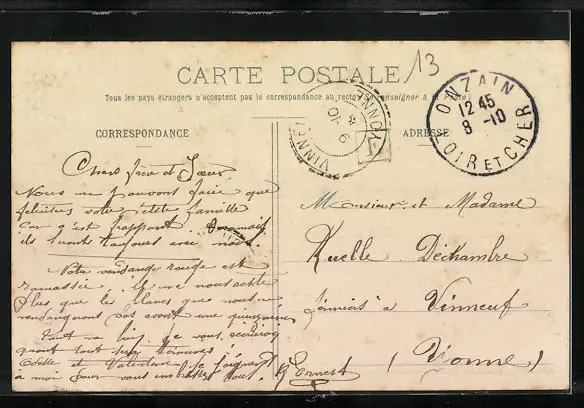 13
CARTE POSTALE
Tous les pays étrangers n'acceptent pas la correspondance au recto
renseigner à la Poste
CORRESPONDANCE
ADRESSE
ONZAIN
12 45
8 - 10
LOIR ET CHER
VINNEUF
YONNE
Chers frère et Soeur
Nous ne pouvons faire que
féliciter votre petite famille
car c'est frappant
ils seront toujours avec nous.
Notre vendange rouge est
ramassée. il ne nous reste
plus que le blanc que nous ne
vendangerons pas avant une quinzaine
tout va bien je vous
quand tout sera terminé
Odette et Valentine se joignent
à moi pour vous embrasser tous.
Ernest
Monsieur et Madame
Ruelle Déchambre
à Vinneuf
(Yonne)